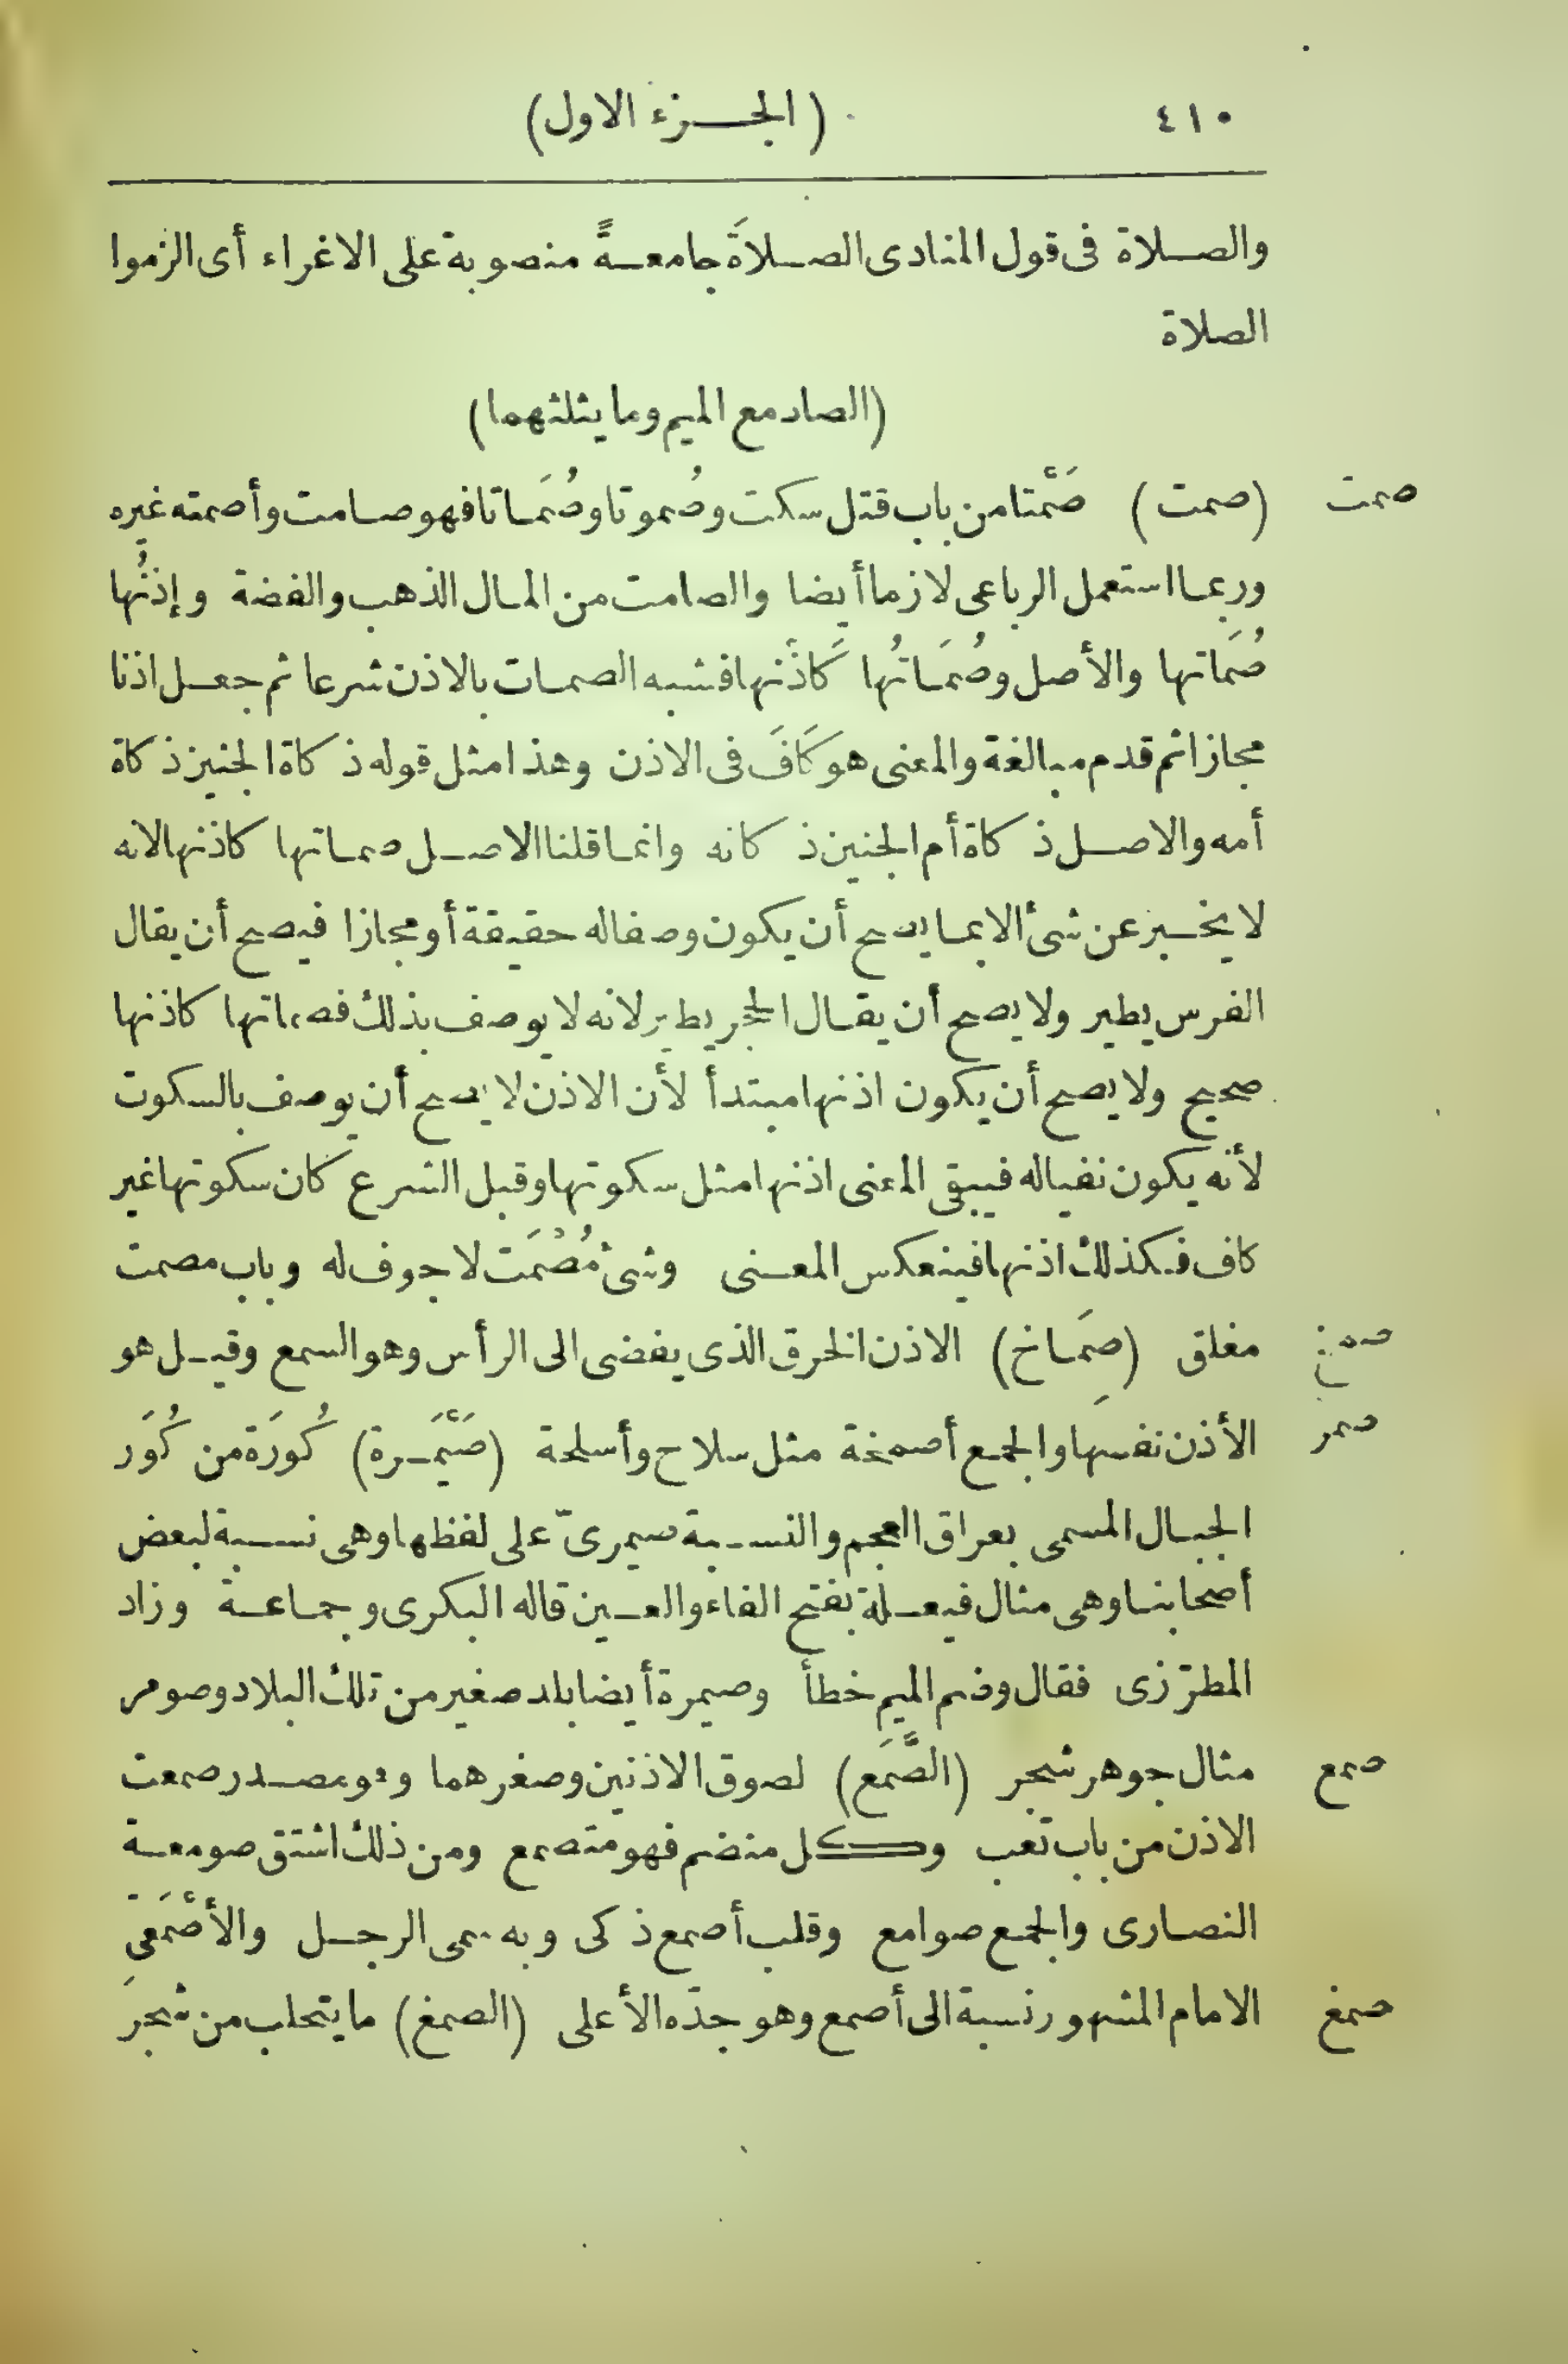 ٤١٠ (الجزء الاول)
والصلاة فى قول المنادى الصلاةَ جامعةً منصوبة على الاغراء أى الزموا
الصلاة
(الصاد مع الميم وما يثلثهما)
صمت (صمت) صَمْتا من باب قتل سكت وصُموتا وصُمَاتا فهو صامت وأصمته غيره
وربما استعمل الرباعى لازما أيضا والصامت من المال الذهب والفضة وإذنُها
صُمَاتها والأصل وصُمَاتُها كَاذْنها فشبه الصمات بالاذن شرعا ثم جعل اذنا
مجازا ثم قدم مبالغة والمعنى هو كَافَ فى الاذن وهذا مثل قوله ذكاة الجنين ذكاة
أمه والاصل ذكاة أم الجنين ذكاته وانما قلنا الاصل صماتها كاذنها لانه
لا يخبر عن شئ الا بما يصح أن يكون وصفا له حقيقة أو مجازا فيصح أن يقال
الفرس يطير ولا يصح أن يقال الحجر يطير لانه لا يوصف بذلك فصماتها كاذنها
صحيح ولا يصح أن يكون اذنها مبتدأ لأن الاذن لا يصح أن يوصف بالسكوت
لأنه يكون نفيا له فيبقى المعنى اذنها مثل سكوتها وقبل الشرع كان سكوتها غير
كاف فكذلك اذنها فينعكس المعنى وشئ مُصْمَت لا جوف له وباب مصمت
صمخ مغلق (صِمَاخ) الاذن الخرق الذى يفضى الى الرأس وهو السمع وقيل هو
صمر الأذن نفسها والجمع أصمخة مثل سلاح وأسلحة (صَيْمَرة) كُورَة من كُوَر
الجبال المسمى بعراق العجم والنسبة صيمرىّ على لفظها وهى نسبة لبعض
أصحابنا وهى مثال فيعلة بفتح الفاء والعين قاله البكرى وجماعة وزاد
المطرّزى فقال وضم الميم خطأ وصيمرة أيضا بلد صغير من تلك البلاد وصومر
صمع مثال جوهر شجر (الصَّمَع) لصوق الاذنين وصغرهما وهو مصدر صمعت
الاذن من باب تعب وكل منضم فهو متصمع ومن ذلك اشتق صومعة
النصارى والجمع صوامع وقلب أصمع ذكى وبه سمى الرجل والأَصْمَعى
صمغ الامام المشهور نسبة الى أصمع وهو جدّه الأعلى (الصمغ) ما يتحلب من شجر